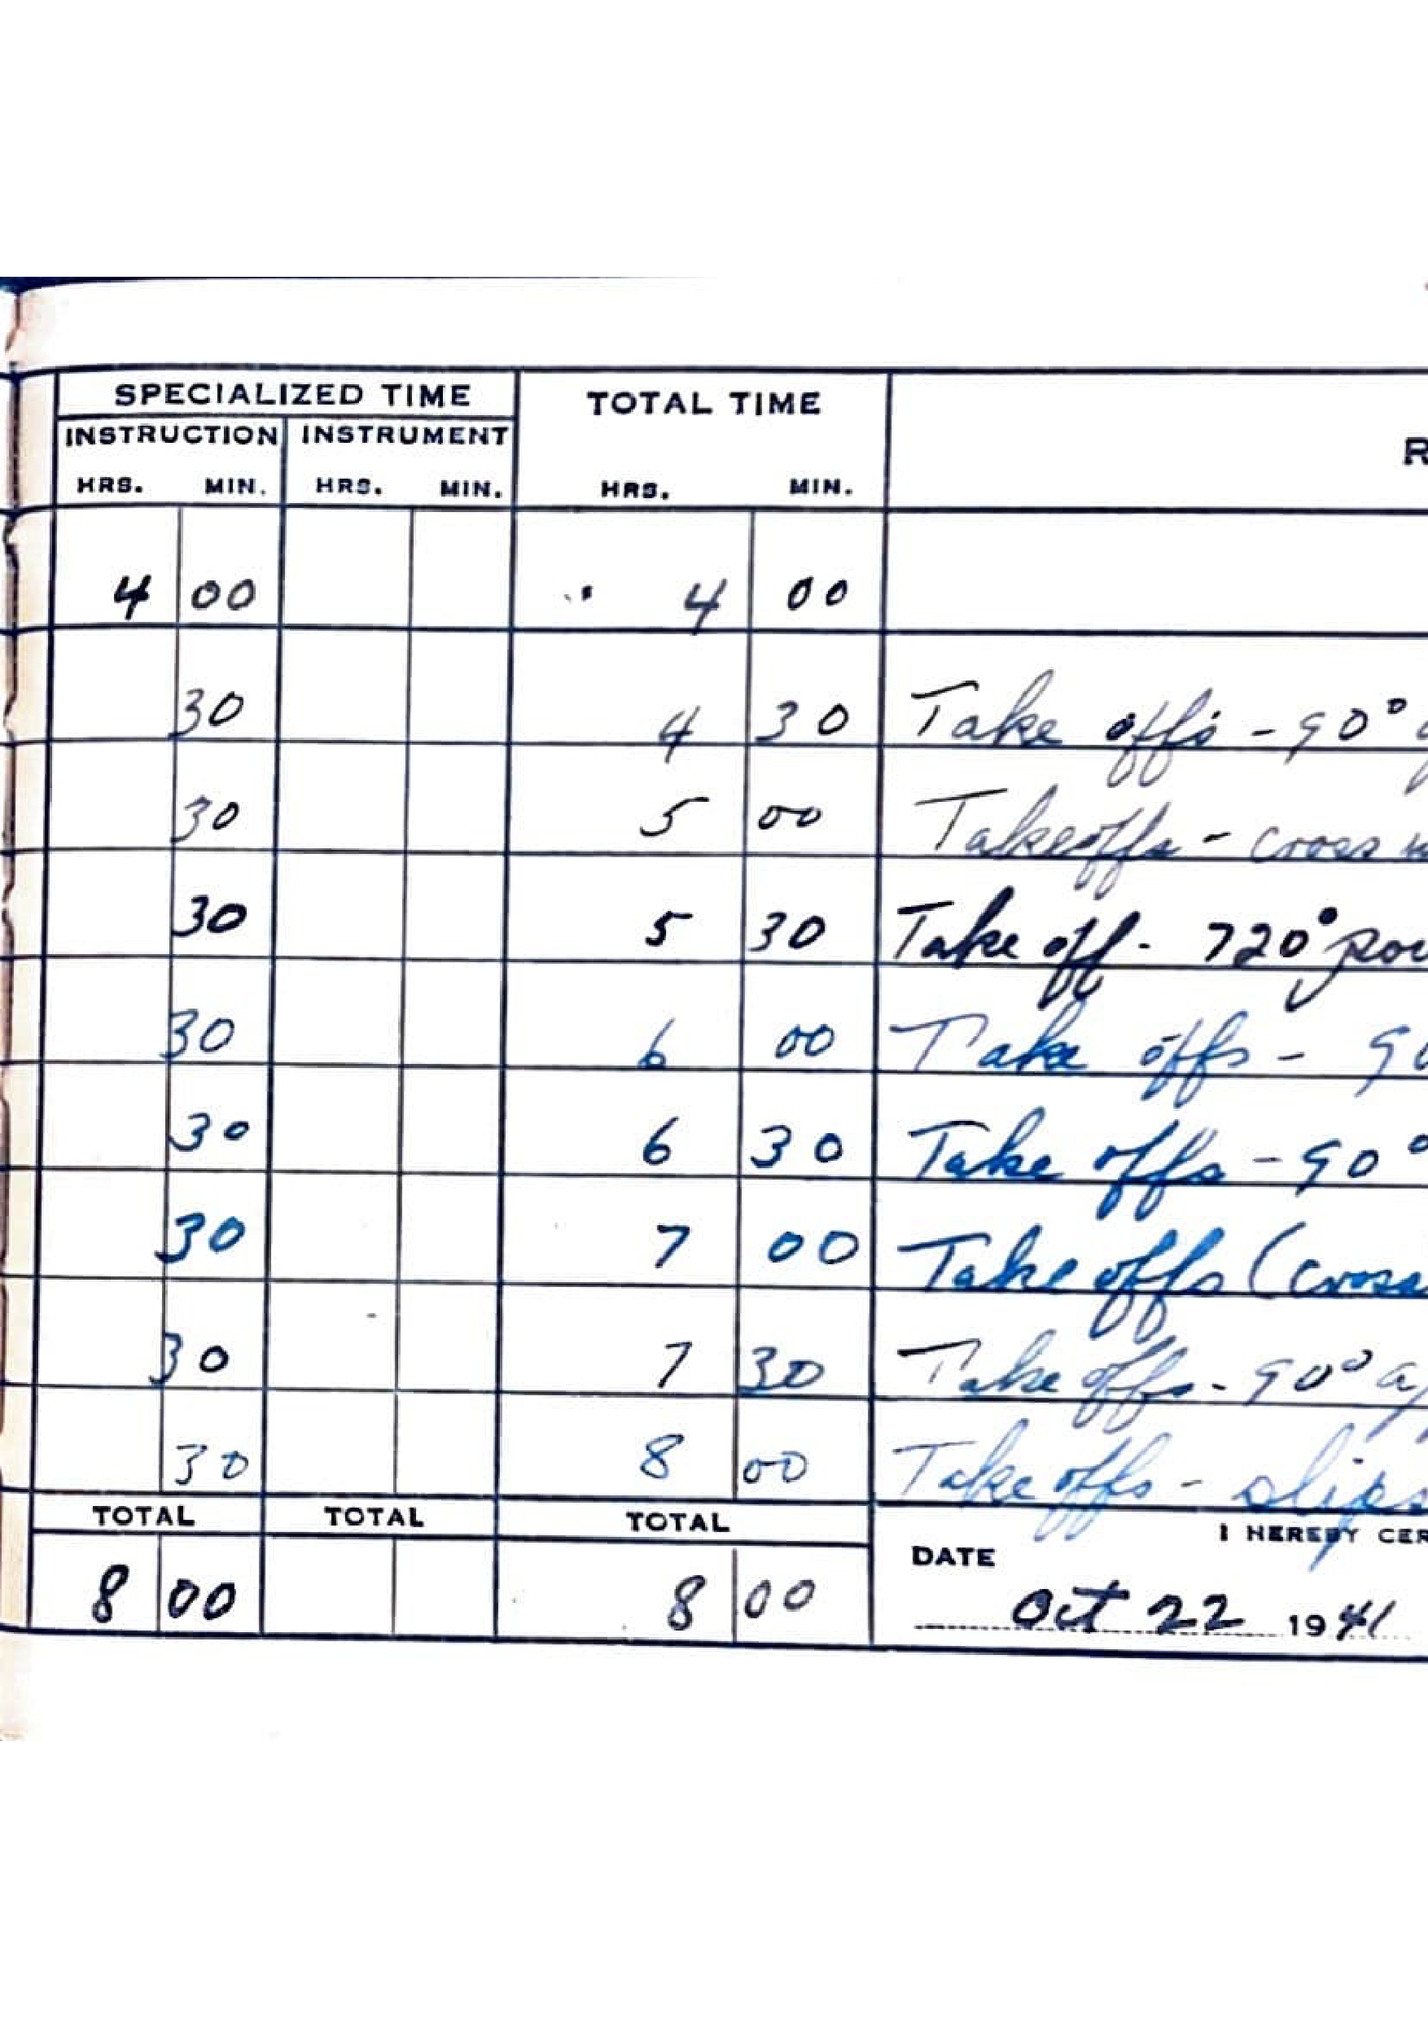 SPECIALIZED TIME TOTAL TIME
INSTRUCTION INSTRUMENT
HRS. MIN. HRS. MIN. HRS. MIN.
4 00 4 00
30 4 30 Take offs - 90°
30 5 00 Takeoffs - cross
30 5 30 Take off - 720°
30 6 00 Take offs - 90
30 6 30 Take offs - 90°
30 7 00 Take offs (cross
30 7 30 Take offs - 90°
30 8 00 Take offs - slips
TOTAL TOTAL TOTAL I HEREBY CER
DATE
8 00 8 00 Oct 22 1941